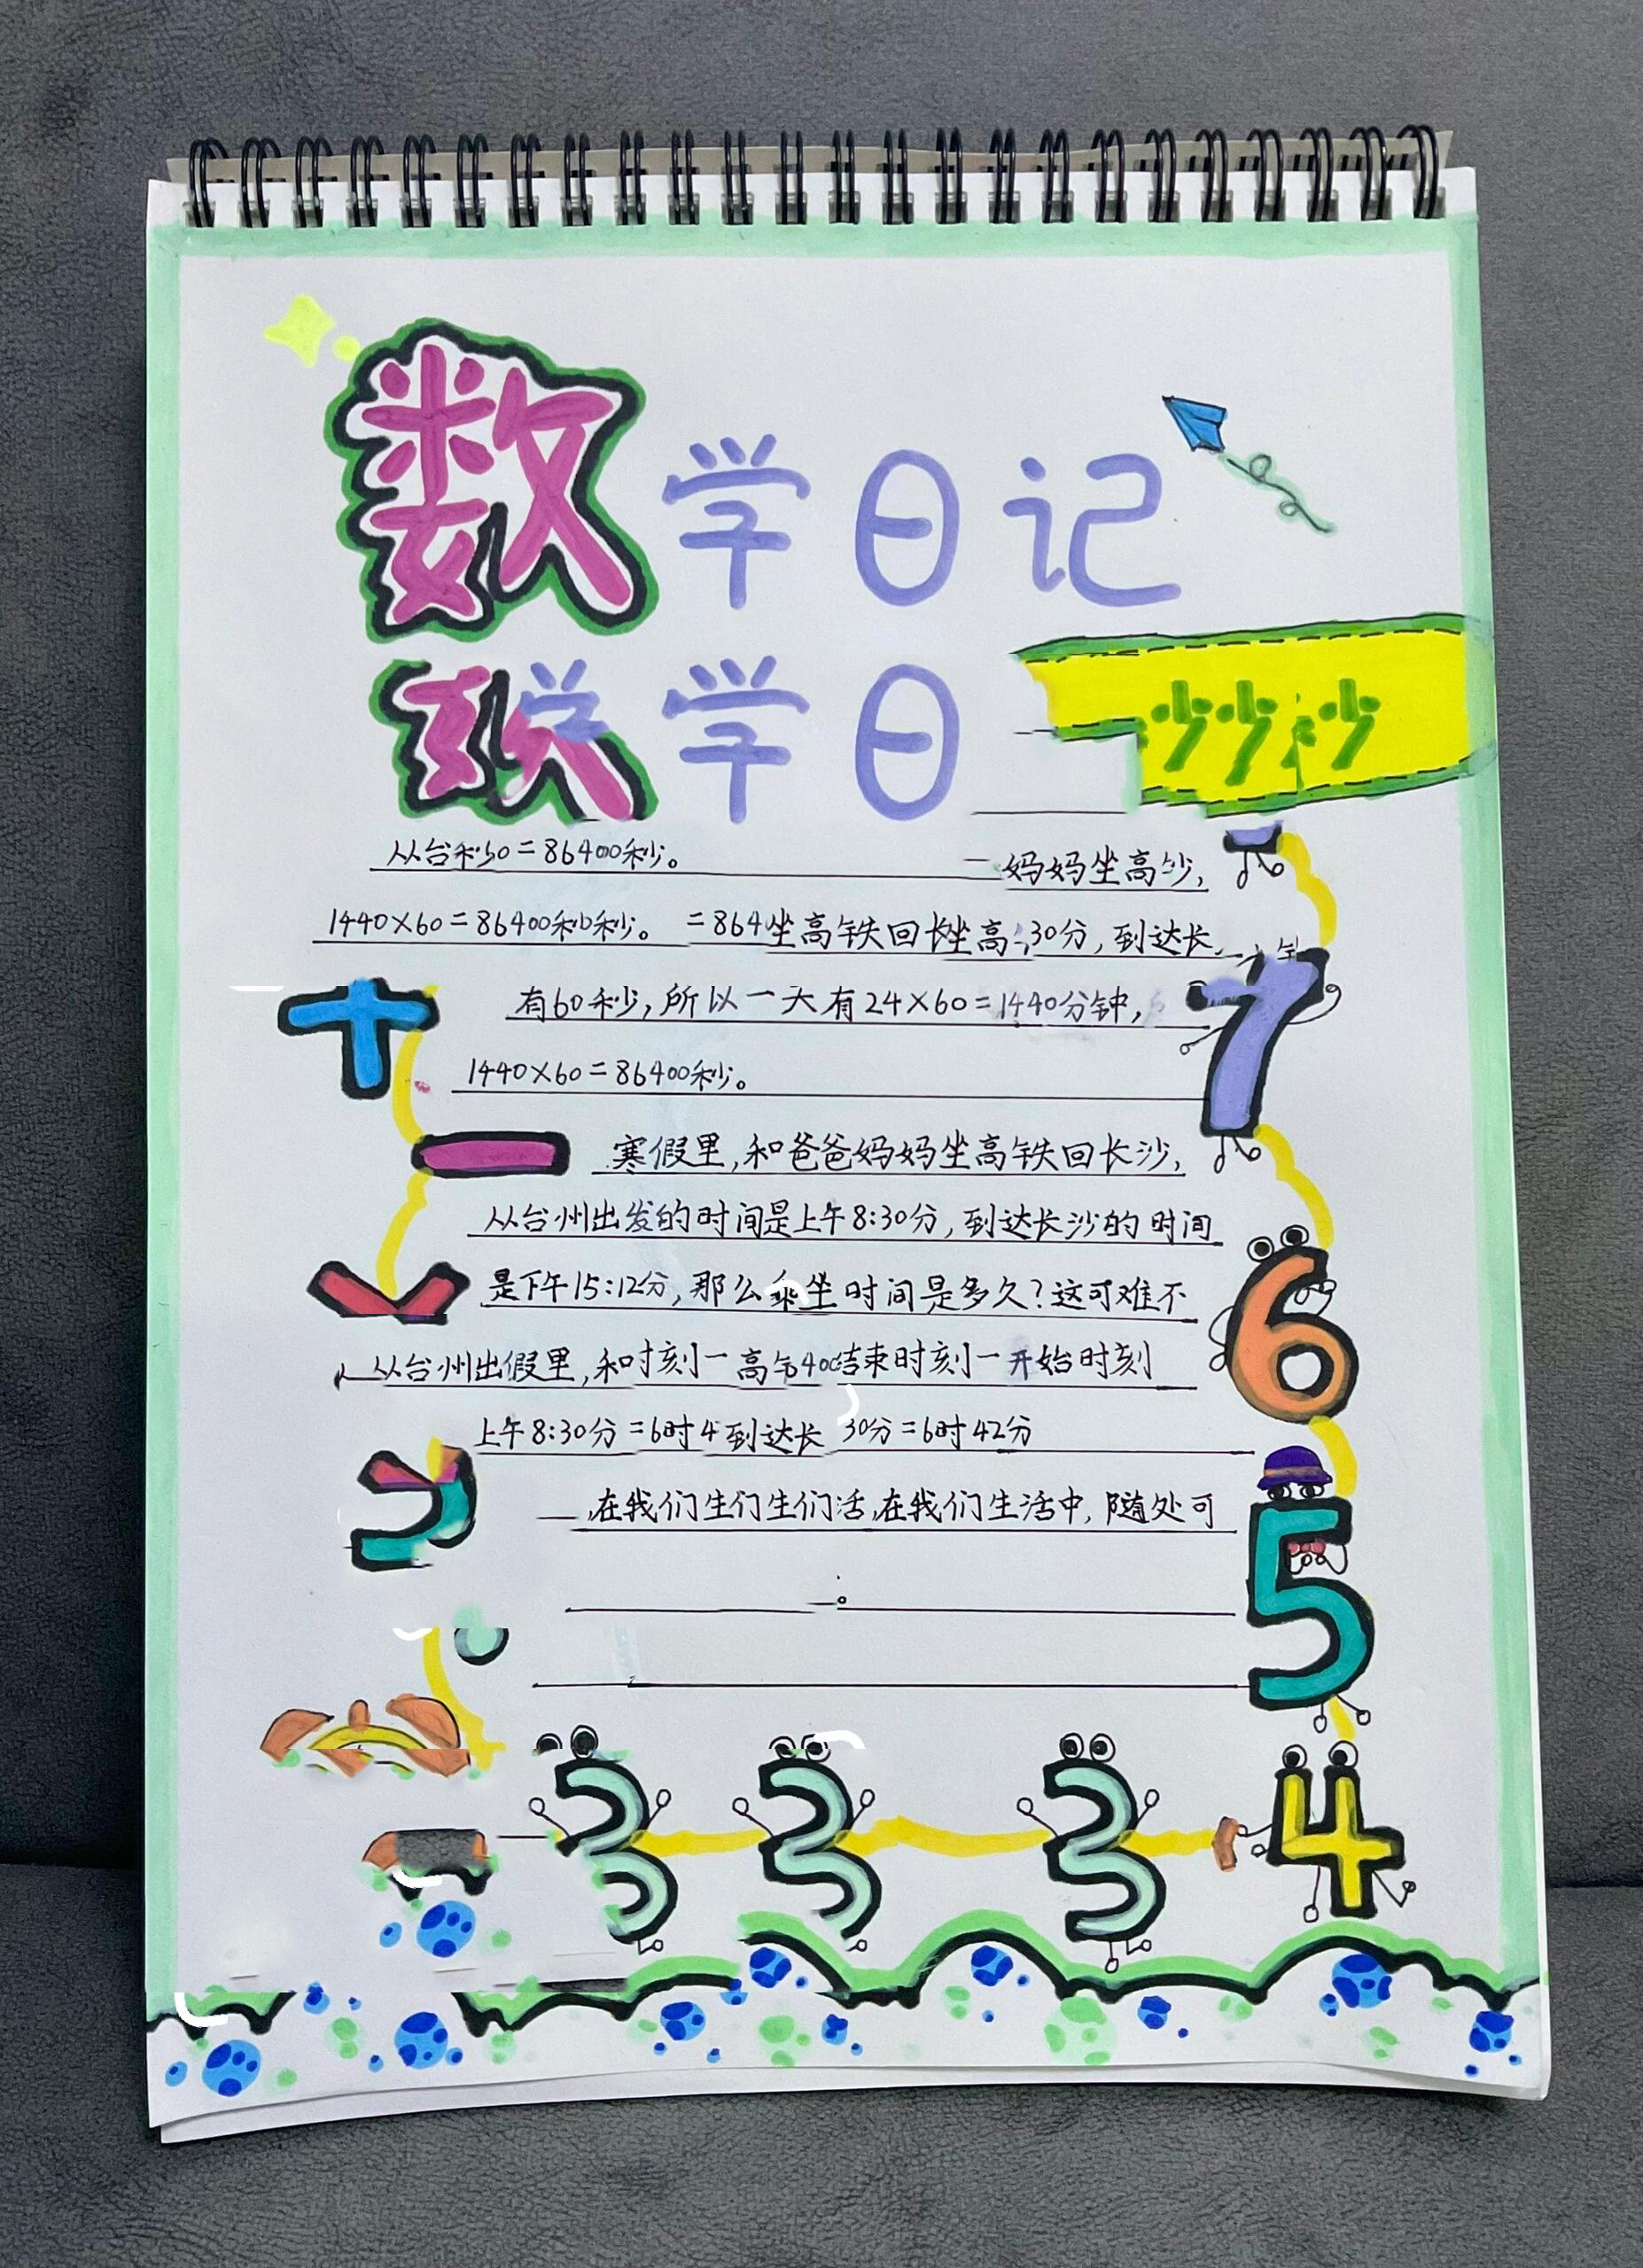 数学日记
学学日
沙沙沙
从台秒0=86400秒。 妈妈坐高沙,
1440×60=86400秒0秒。 =864坐高铁回长坐高30分,到达长
有60秒,所以一天有24×60=1440分钟,
7
1440×60=86400秒。
寒假里,和爸爸妈妈坐高铁回长沙,
从台州出发的时间是上午8:30分,到达长沙的时间
是下午15:12分,那么乘坐时间是多久?这可难不
6
从台州出假里,和时刻一高 结束时刻一开始时刻
上午8:30分=6时4到达长 30分=6时42分
在我们生们生们活,在我们生活中,随处可
5
。
3 3 3 4